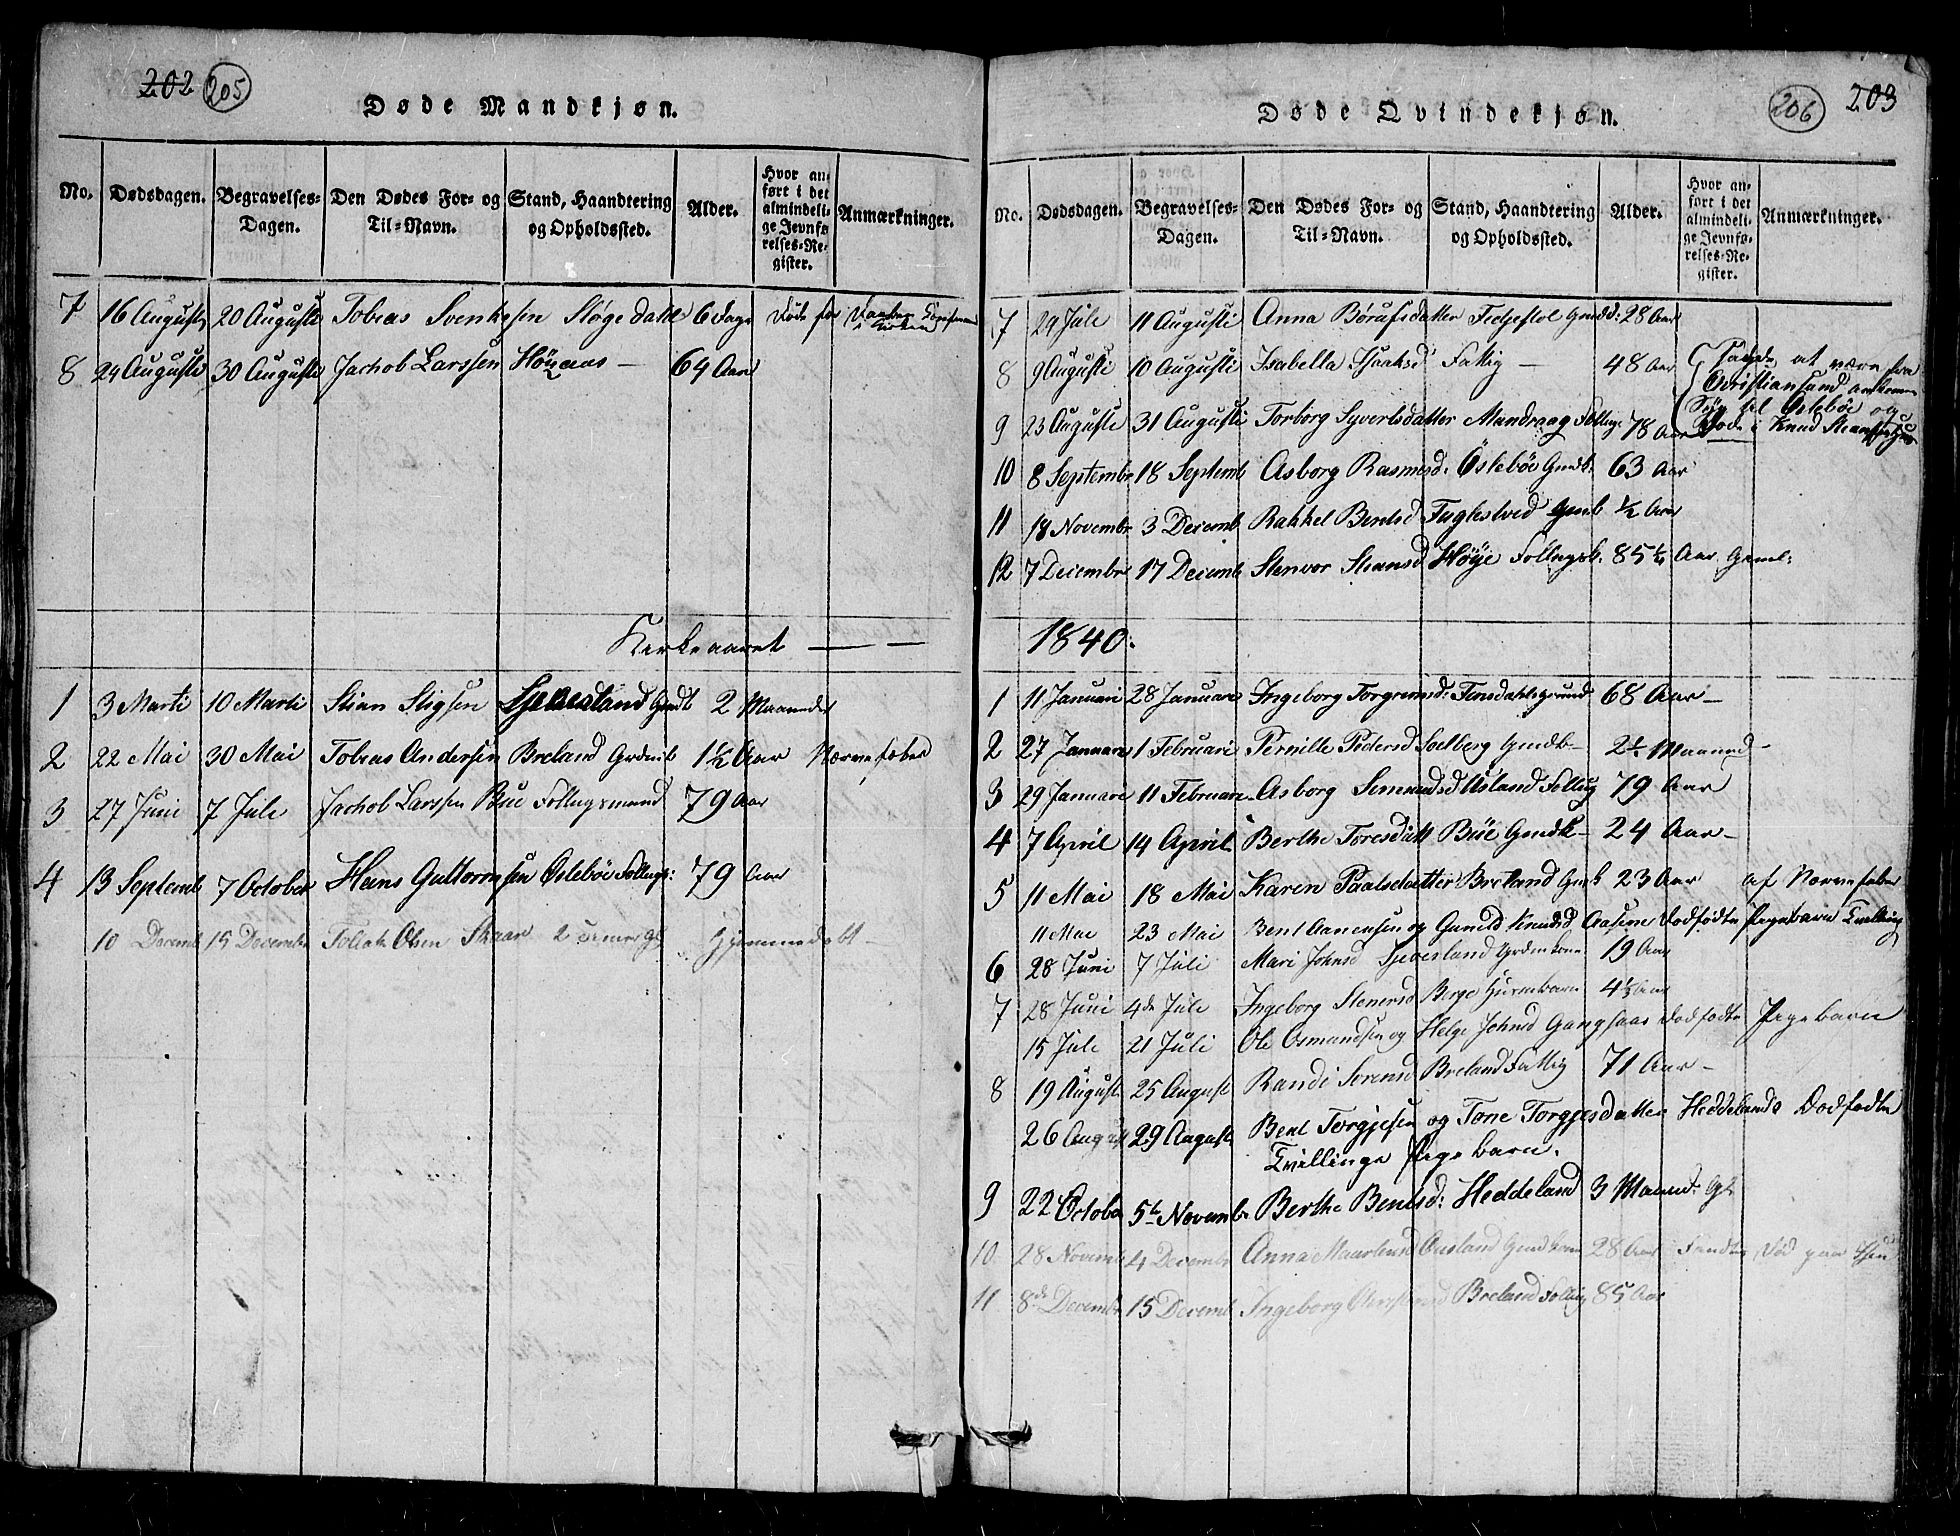 202 205
Døde Mandkjøn.
No. Dødsdagen. Begravelses-Dagen. Den Dødes For- og Til-Navn. Stand, Haandtering og Opholdssted. Alder. Hvor anført i det almindelige Jevnførelses-Register. Anmærkninger.
7 16 Auguste 20 Auguste Tobias Svenksen Støgedahl 6 Dage Død før
8 24 Auguste 30 Auguste Jachob Larssen Høyaas — 64 Aar
Kirkeaaret — —
1 3 Marti 10 Marti Stian Stigsen 2 Maaneder
2 22 Mai 30 Mai Tobias Andersen Breland 1½ Aar Nervefeber
3 27 Juni 7 Juli Jachob Larssen Bue Follugsmand 79 Aar
4 13 Septemb 7 October Hans Guttormsen Ostebøe Follugs: 79 Aar
10 Decemb 15 December Tollak Olsen Skaar Hjemmedøbt —
206 203
Døde Qvindekjøn.
No. Dødsdagen. Begravelses-Dagen. Den Dødes For- og Til-Navn. Stand, Haandtering og Opholdssted. Alder. Hvor anført i det almindelige Jevnførelses-Register. Anmærkninger.
7 29 Juli 11 Auguste Anna Børufsdatter Fidjestøl 28 Aar
8 9 Auguste 10 Auguste Isabella Isaaksd Fattig — 48 Aar Sagde at være fra
Christiansand
til Ostebøe og
Døde i Knud
9 23 Auguste 31 Auguste Torborg Syvertsdatter Mandraag Follug: 78 Aar
10 8 Septembr 18 Septemb Asborg Rasmusd: Östebøe Gmdk: 63 Aar
11 18 Novembr 3 Decemb Rakkel Bentsd Fuglestved Gmb ½ Aar
12 7 Decembr 17 Decemb Stenvor Stiansd Høye Follugsk. 85½ Aar Gaml:
1840.
1 11 Januari 28 Januari Ingeborg Torgrimsd: Finsdahl 68 Aar —
2 27 Januari 1 Februari Pernille Pedersd Solberg Gmdb— 2½ Maaned —
3 29 Januari 11 Februari Asborg Simundsd Usland Follug 79 Aar
4 7 April 14 April Berthe Toresdatt Büe Gmdk— 24 Aar —
5 11 Mai 18 Mai Karen Paalsdatter Breland Gmk 23 Aar af Nervefeber
11 Mai 23 Mai Bent Aanensen og Gunild Knudsd Aasime Dødfødte Pigebarn Tvilling
6 28 Juni 7 Juli Mari Johnsd Sjevesland 19 Aar
7 28 Juni 4de Juli Ingeborg Stenersd Berge 4½ Aar
15 Juli 21 Juli Ole Osmundsen og Helge Johnsd Gangsaas Dødfødte Pigebarn
8 19 August 25 August Randi Sørensd Breland Fattig 71 Aar —
26 August 29 August Bent Torgjesen og Tone Torgjesdatter Heddelands Dødfødte
Tvillinge Pigebarn.
9 22 Octobr 5te Novembr Berthe Bentsd: Heddeland 3 Maand: Gl
10. 28 Novemb 4 Decembr Anna Maartensd Ousland Gmdkone 28 Aar Død paa
11 8de Decembr 15 Decemb Ingeborg Breland Follug 85 Aar